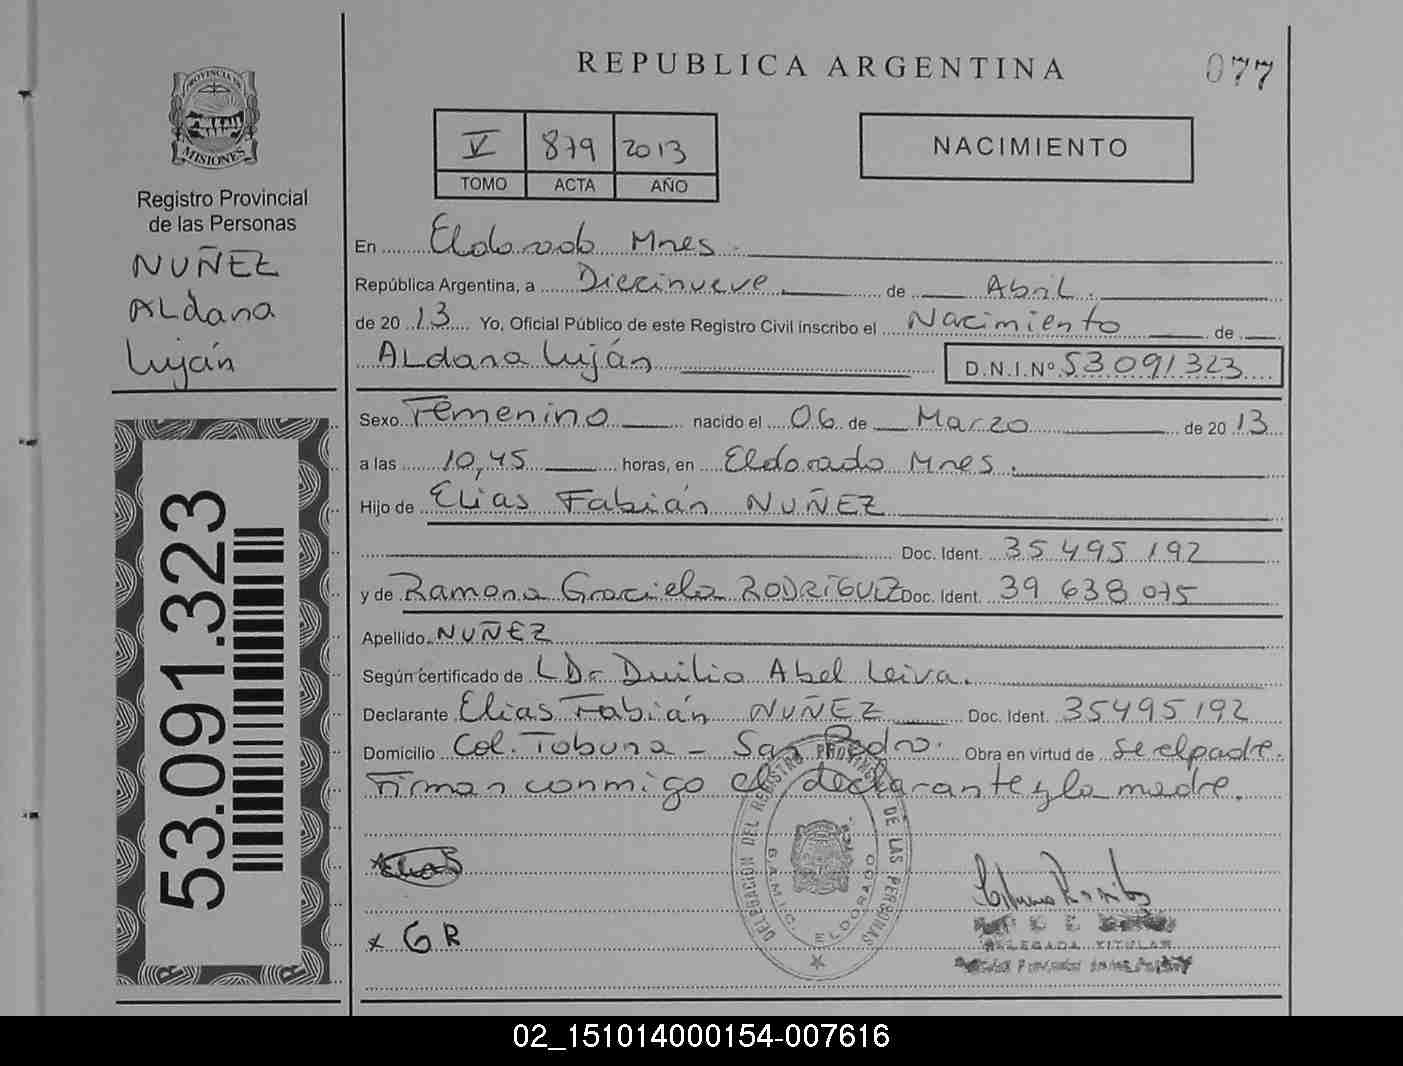 REPUBLICA ARGENTINA
077
PROVINCIA DE
MISIONES
Registro Provincial
de las Personas
NUÑEZ
ALdana
Luján
53.091.323
V 879 2013
TOMO ACTA AÑO
NACIMIENTO
En Eldorado Mnes.
República Argentina, a Diecinueve de Abril.
de 20 13 Yo, Oficial Público de este Registro Civil inscribo el Nacimiento de
ALdana Luján D.N.I.Nº 53.091.323
Sexo Femenino nacido el 06 de Marzo de 20 13
a las 10,45 horas, en Eldorado Mnes.
Hijo de Elias Fabián NUÑEZ
Doc. Ident. 35 495 192
y de Ramona Graciela RODRIGUEZ Doc. Ident. 39 638 075
Apellido NUÑEZ
Según certificado de LDr Duilio Abel Leiva.
Declarante Elias Fabián NUÑEZ Doc. Ident. 35495192
Domicilio Col. Tobuna - San Pedro. Obra en virtud de se el padre.
Firman conmigo el declarante y la madre.
Elias
x GR
DELEGACIÓN DEL REGISTRO PROVINCIAL DE LAS PERSONAS
ELDORADO
DELEGADA TITULAR
02_151014000154-007616